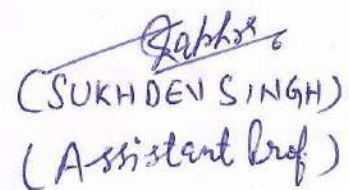 (SUKHDEV SINGH)
(Assistant Prof)